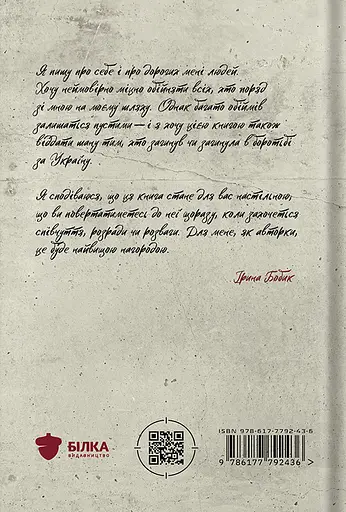 Я пишу про себе і про дорогих мені людей.
Хочу неймовірно міцно обійняти всіх, хто поряд
зі мною на моєму шляху. Однак багато обіймів
залишаться пустими — і я хочу цією книгою також
віддати шану тим, хто загинув чи загинула в боротьбі
за Україну.
Я сподіваюся, що ця книга стане для вас настільною,
що ви повертатиметесь до неї щоразу, коли захочеться
співчуття, розради чи розваги. Для мене, як авторки,
це буде найвищою нагородою.
Ірина Бобик
БІЛКА
видавництво
ISBN 978-617-7792-43-6
9 786177 792436 >